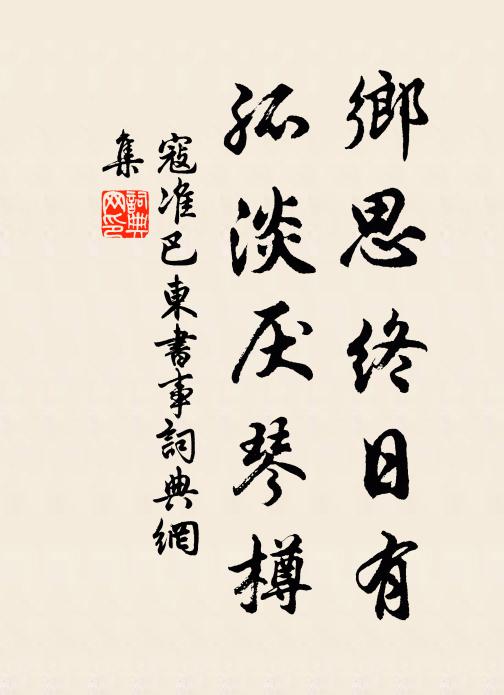 鄉思終日有
孤淡厌琴樽
寇准巴東書事詞典網
集
詞典
网印